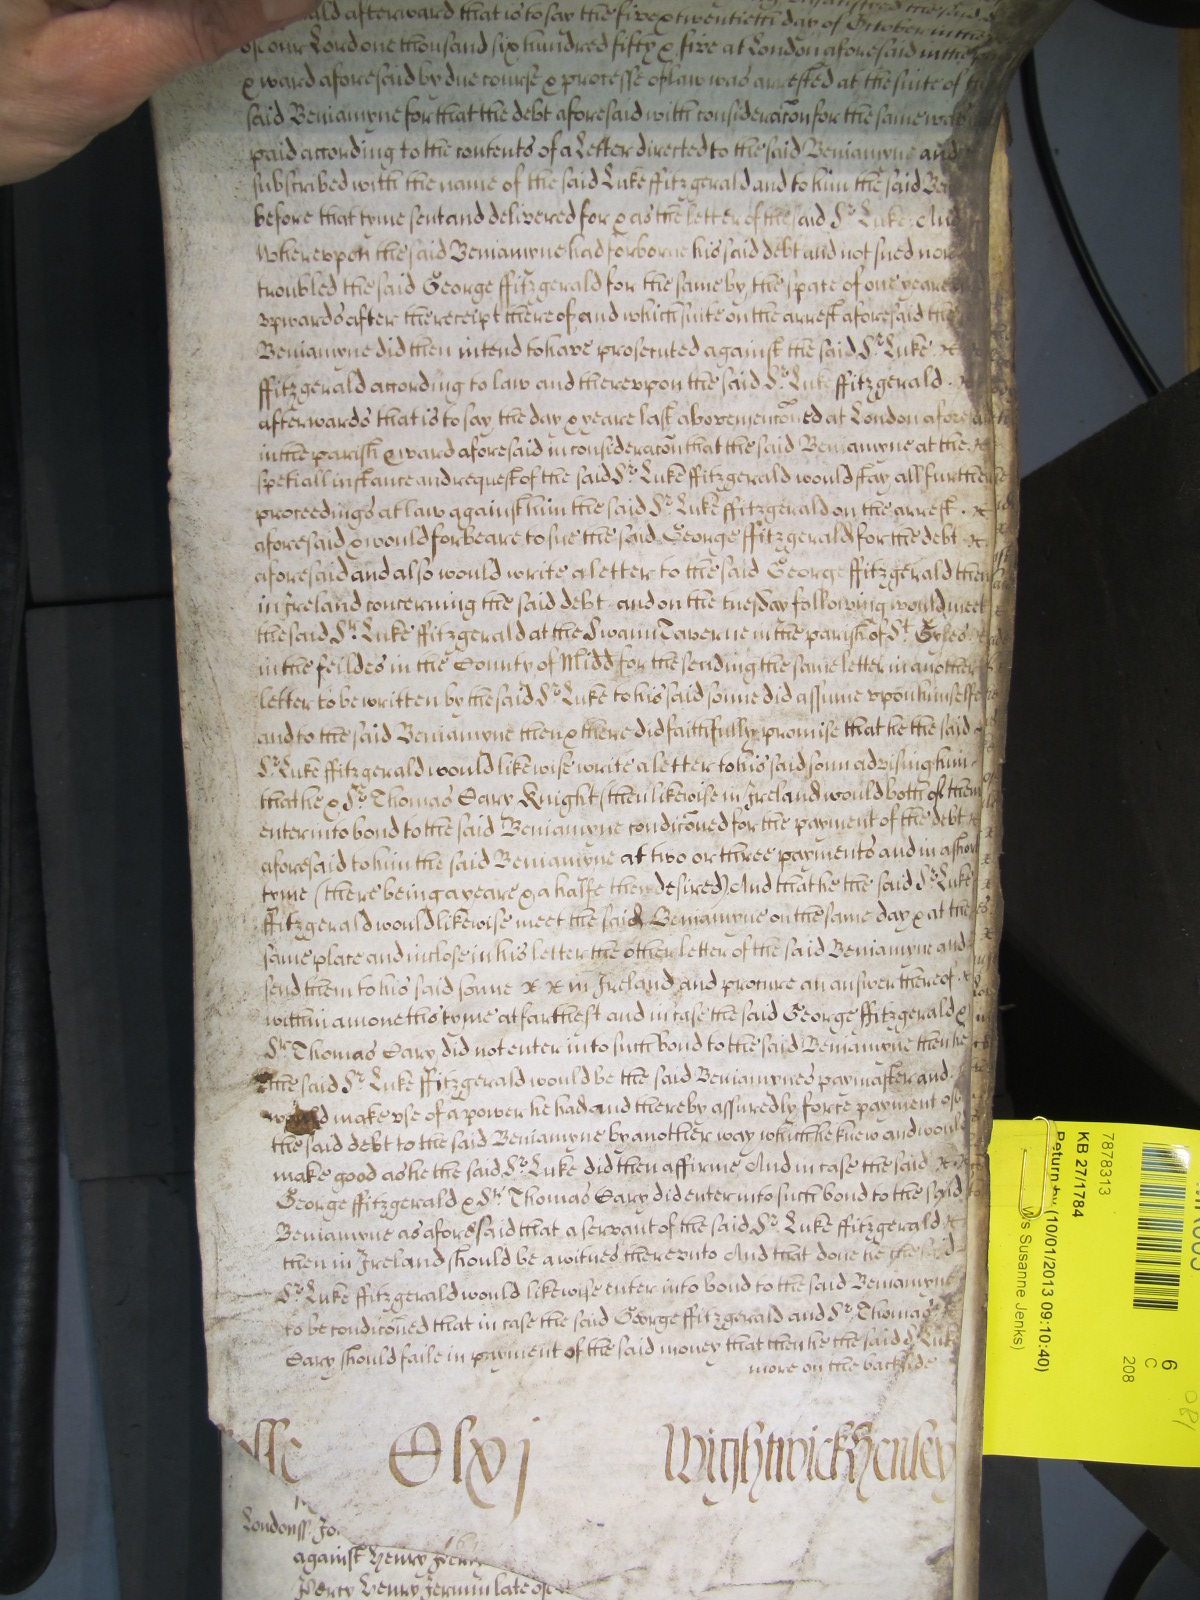 afterward that is to say the five & twentieth day of October in the
of our Lord one thousand six hundred fifty & five at London aforesaid in the
& ward aforesaid by due course & processe of law was arrested at the suite of
said Beniamyne for that the debt aforesaid with consideracon for the same was
paid according to the contents of a Letter directed to the said Beniamyne and
subscribed with the name of the said Luke ffitzgerald and to him the said
before that tyme sent and delivered for & as the letter of the said Sr Luke And
wherevpon the said Beniamyne had forborne his said debt and not sued nor
troubled the said George ffitzgerald for the same by the space of one yeare
vpwards after the receipt thereof and which suite on the arrest aforesaid the
Beniamyne did then intend to have prosecuted against the said Sr Luke
ffitzgerald according to law and therevpon the said Sr Luke ffitzgerald
afterwards that is to say the day & yeare last abovemenconed at London aforesaid
in the parish & ward aforesaid in consideracon that the said Beniamyne at the
speciall instance and request of the said Sr Luke ffitzgerald would stay all further
proceedings at law against him the said Sr Luke ffitzgerald on the arrest
aforesaid & would forbeare to sue the said George ffitzgerald for the debt
aforesaid and also would write a letter to the said George ffitzgerald then
in Ireland concerning the said debt and on the tuesday following would meet
the said Sr Luke ffitzgerald at the Swann Taverne in the parish of St Gyles
in the feildes in the County of Midd for the sending the same letter in another
letter to be written by the said Sr Luke to his said sonne did assume vpon himselfe
and to the said Beniamyne then & there did faithfully promise that he the said
Sr Luke ffitzgerald would likewise write a letter to his said sonn advising him
that he & Sr Thomas Cary Knight (then likewise in Ireland) would both of them
enter into bond to the said Beniamyne condiconed for the payment of the debt
aforesaid to him the said Beniamyne at two or three payments and in a short
tyme (there being a yeare & a halfe then desired) And that he the said Sr Luke
ffitzgerald would likewise meet the said Beniamyne on the same day & at the
same place and inclose in his letter the other letter of the said Beniamyne and
send them to his said sonne in Ireland and procure an answer thereof
within a moneths tyme at farthest and in case the said George ffitzgerald &
Sr Thomas Cary did not enter into such bond to the said Beniamyne then he
the said Sr Luke ffitzgerald would be the said Beniamynes paymaster and
would make vse of a power he had and thereby assuredly force payment of
the said debt to the said Beniamyne by another way which he knew and would
make good as he the said Sr Luke did then affirme And in case the said
George ffitzgerald & Sr Thomas Cary did enter into such bond to the said
Beniamyne as aforesaid that a servant of the said Sr Luke ffitzgerald
then in Ireland should be a witnes therevnto And that done he the said
Sr Luke ffitzgerald would likewise enter into bond to the said Beniamyne
to be condiconed that in case the said George ffitzgerald and Sr Thomas
Cary should faile in payment of the said money that then he the said Sr Luke
more on the backside
Clxvj Wightwick Henley
Londonss Jo.
against Henry Jerm
Percy Henry Jermin late of
7878313
KB 27/1784
Return by (10/01/2013 09:10:40)
s Susanne Jenks)
6
C
208